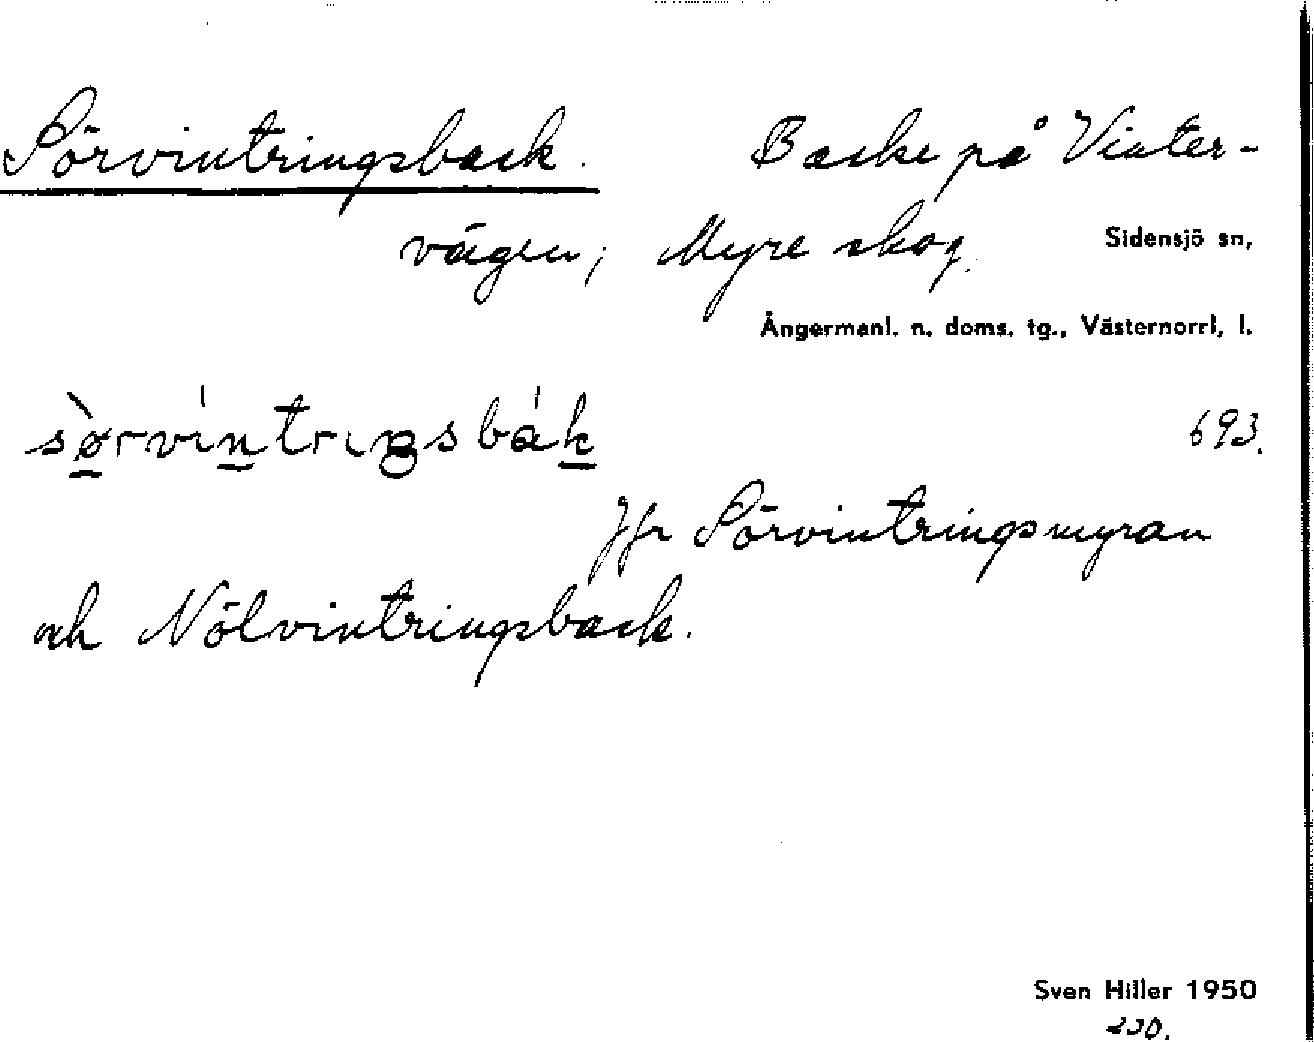 Sörvintringsback. Backe på Vinter-
vägen; Myre skog. Sidensjö sn,
Ångermanl. n. doms. tg., Västernorrl, l.
sø̀rvíntrıŋsbák 693.
Jfr Sörvintringsmyran
och Nölvintringsback.
Sven Hiller 1950
230.